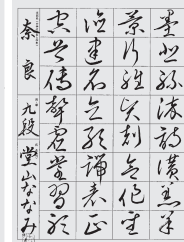 墨悲絲染詩讃羔羊
景行維賢剋念作聖
徳建名立形端表正
空谷傳聲虚堂習聽
奈良 九段 堂山ななみ